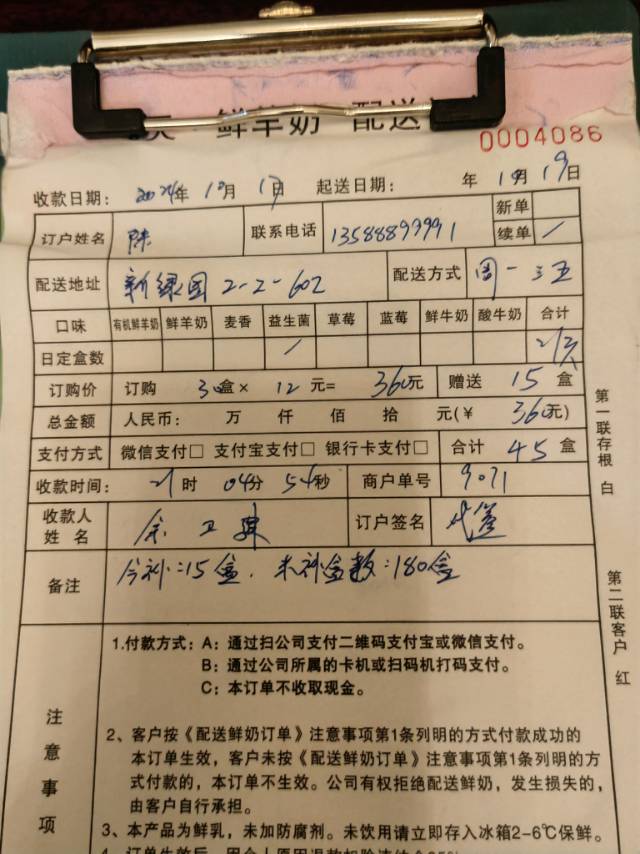 鲜羊奶 配送
0004086
收款日期: 2024年 10月 17日 起送日期: 年 10月 19日
订户姓名 陈 联系电话 13588899991 新单
续单 /
配送地址 新绿园 2-2-602 配送方式 周一三五
口味 有机鲜羊奶 鲜羊奶 麦香 益生菌 草莓 蓝莓 鲜牛奶 酸牛奶 合计
日定盒数 /
订购价 订购 30盒× 12 元= 360元 赠送 15 盒
总金额 人民币: 万 仟 佰 拾 元(¥ 360元)
支付方式 微信支付□ 支付宝支付□ 银行卡支付□ 合计 45 盒
收款时间: 21时 04分 54秒 商户单号 9071
收款人
姓 名
订户签名 代签
备注 今补:15盒. 未补盒数:180盒
第一联存根 白
第二联客户 红
注意事项
1.付款方式: A: 通过扫公司支付二维码支付宝或微信支付。
B: 通过公司所属的卡机或扫码机打码支付。
C: 本订单不收取现金。
2、客户按《配送鲜奶订单》注意事项第1条列明的方式付款成功的
本订单生效，客户未按《配送鲜奶订单》注意事项第1条列明的方
式付款的，本订单不生效。公司有权拒绝配送鲜奶，发生损失的，
由客户自行承担。
3、本产品为鲜乳，未加防腐剂。未饮用请立即存入冰箱2-6℃保鲜。